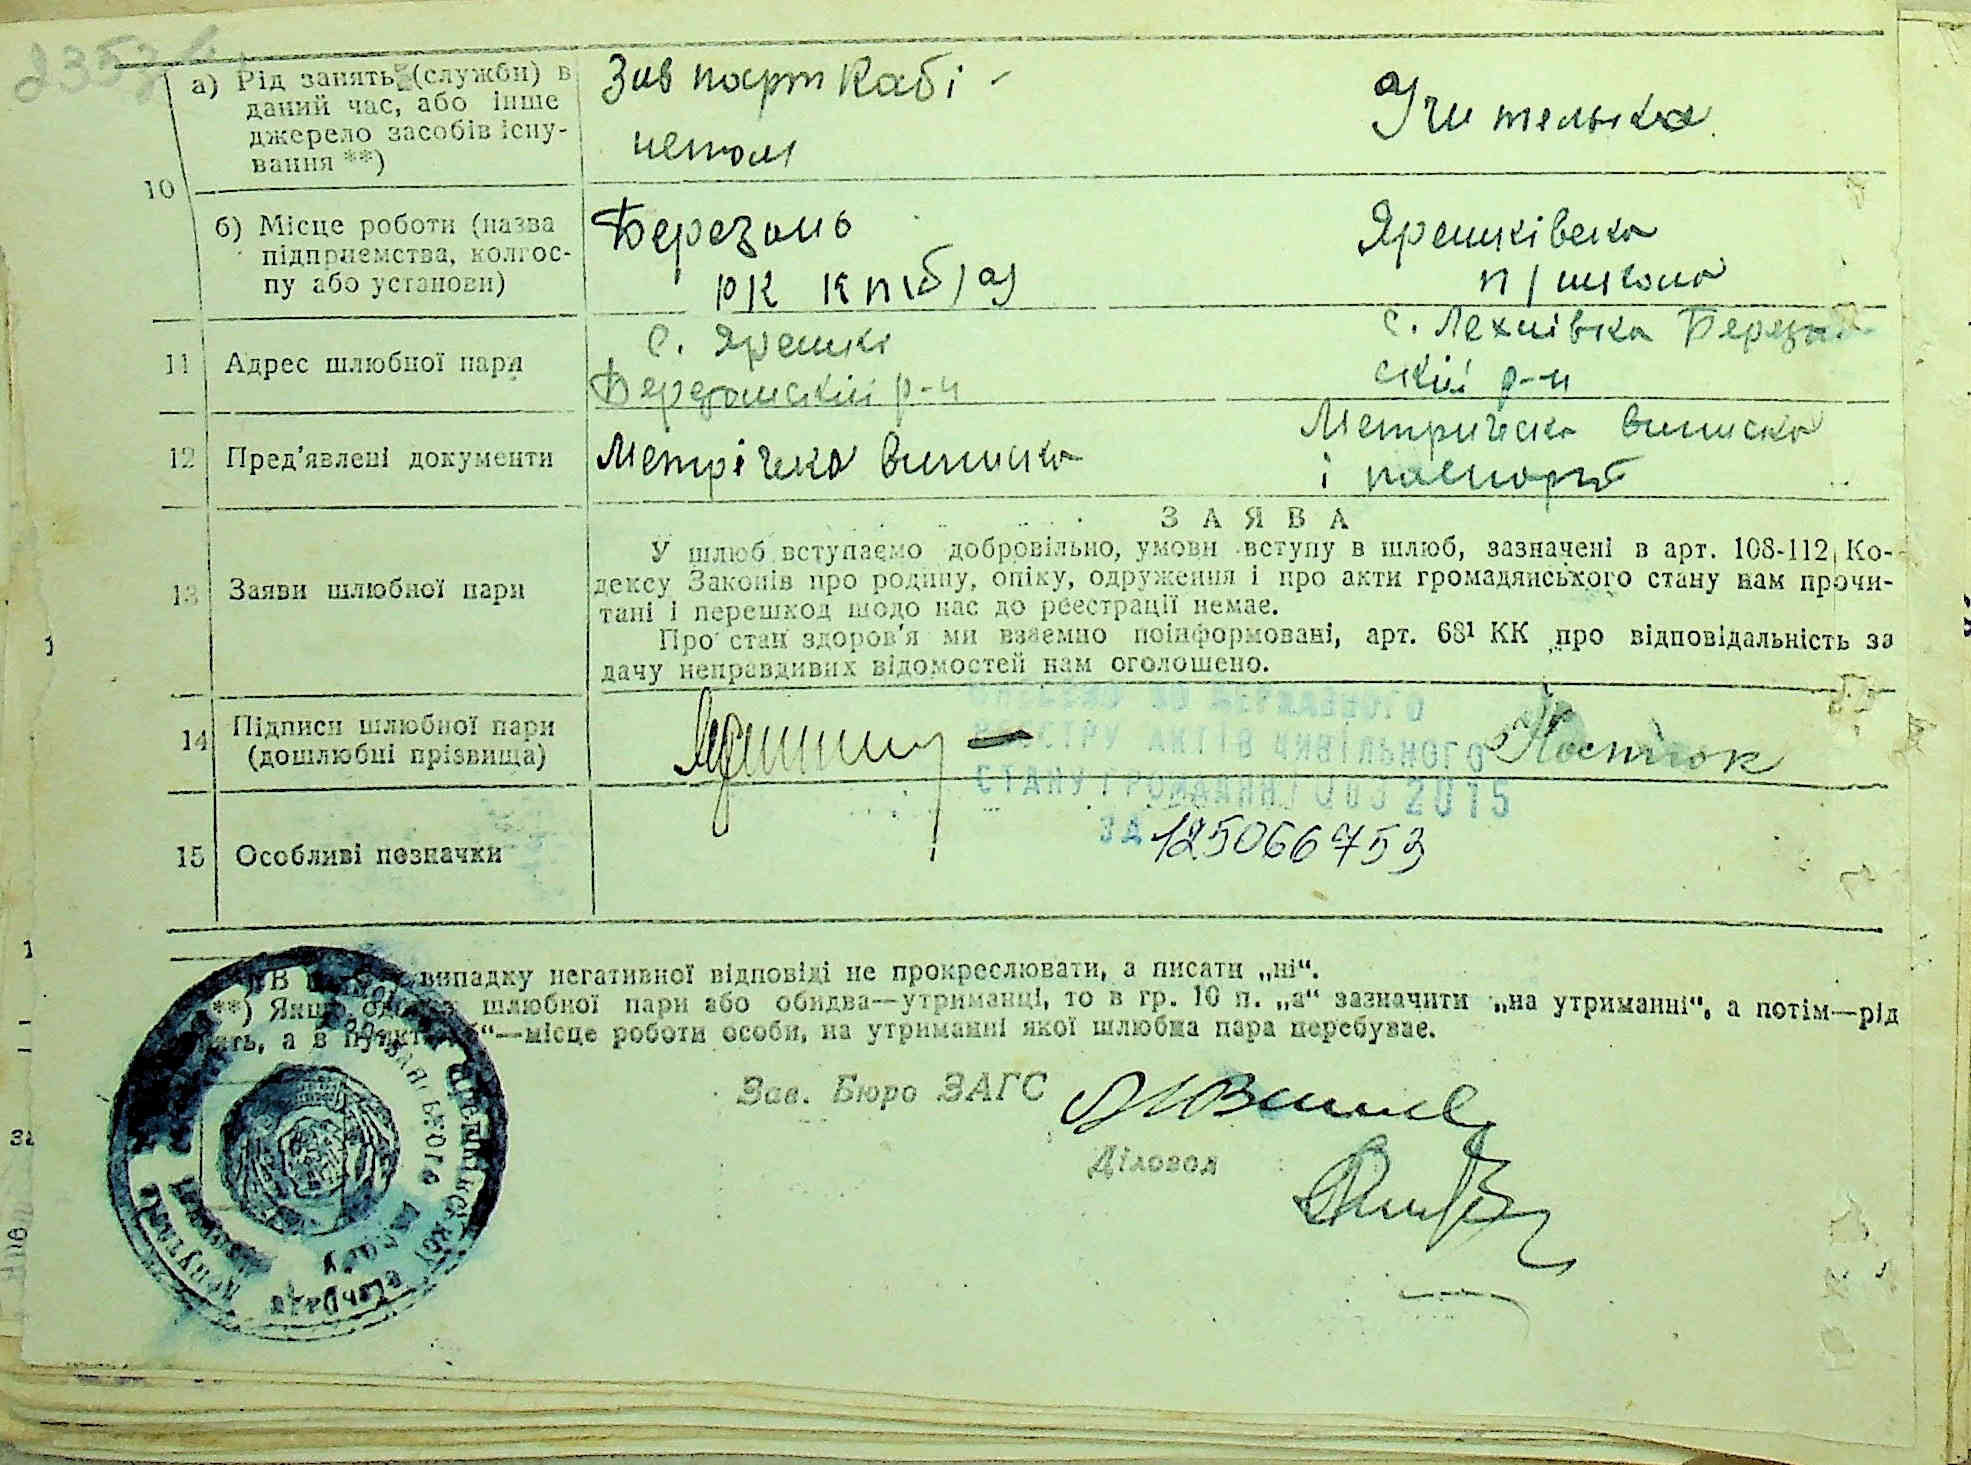 а) Рід занять (служби) в
даний час, або інше
джерело засобів існу-
вання **)
Зав парткабі-
нетом
Учителька
10
б) Місце роботи (назва
підприємства, колгос-
пу або установи)
Березань
РК КП(б)У
Ярешківска
п/школа
11 Адрес шлюбної пари
с. Ярешкі
Березанский р-н
с. Лехнівка Березан
ский р-н
12 Пред'явлені документи
Метрічка виписка
Метрическа виписка
і паспорт
13 Заяви шлюбної пари
ЗАЯВА
У шлюб вступаємо добровільно, умови вступу в шлюб, зазначені в арт. 108-112 Ко-
дексу Законів про родину, опіку, одруження і про акти громадянського стану нам прочи-
тані і перешкод щодо нас до реєстрації немає.
Про стан здоров'я ми взаємно поінформовані, арт. 68¹ КК про відповідальність за
дачу неправдивих відомостей нам оголошено.
14 Підписи шлюбної пари
(дошлюбні прізвища)
Костюк
ВНЕСЕНО ДО ДЕРЖАВНОГО
РЕЄСТРУ АКТІВ ЦИВІЛЬНОГО
СТАНУ ГРОМАДЯН 2015
ЗА 125066753
15 Особливі позначки
*) В випадку негативної відповіді не прокреслювати, а писати „ні“.
**) Якщо шлюбної пари або обидва—утриманці, то в гр. 10 п. „а“ зазначити „на утриманні“, а потім—рід
занять, а в пункті „б“—місце роботи особи, на утриманні якої шлюбна пара перебуває.
Зав. Бюро ЗАГС
Діловод